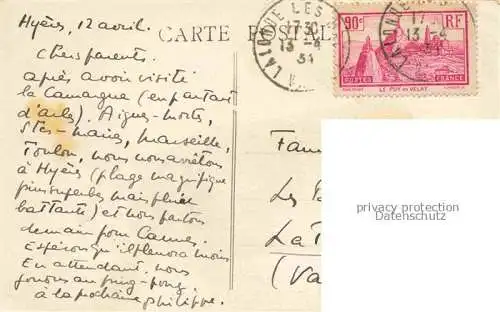 Hyères, 12 avril.
CARTE POSTALE
Chers parents.
après avoir visité
la Camargue (en partant
d'arles) Aigues-Mortes,
Stes-Maries, Marseille,
Toulon, nous nous arrêtons
à Hyères (plage magnifique
pins superbes mais pluie
battante) et nous partons
demain pour Cannes.
Espérons qu'il pleuvra moins
En attendant, nous
jouons au ping-pong.
à la prochaine philippe.
LA LONDE LES
17 30
13 -4
34
90c
RF
POSTES FRANCE
LE PUY EN VELAY
LA LONDE
17
13 -4
34
Fam
Les
La
(Va
privacy protection
Datenschutz